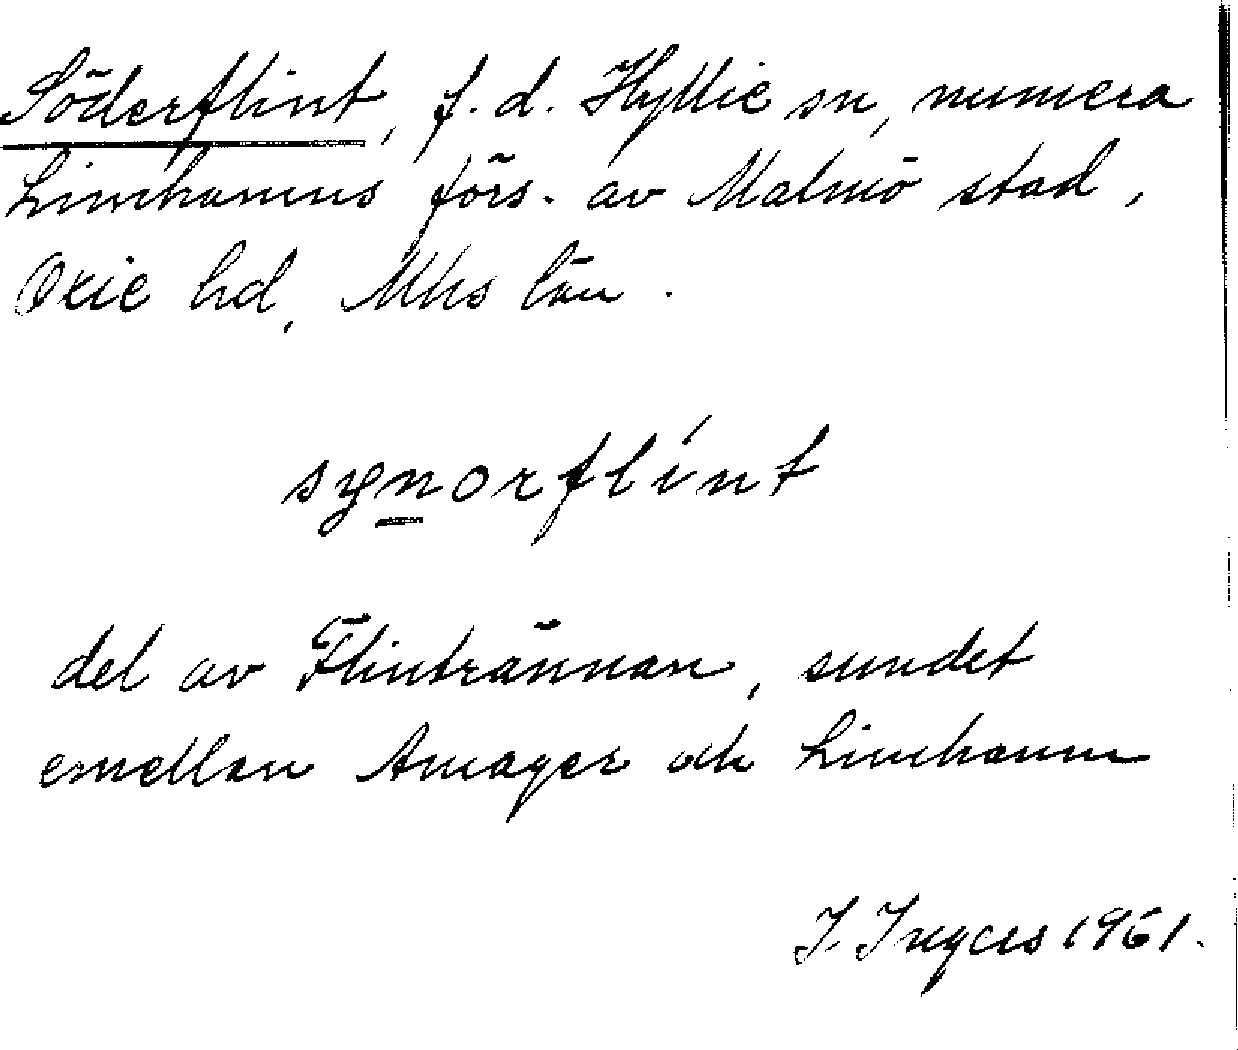 Söderflint, f. d. Hyllie sn, numera
Limhamns förs. av Malmö stad,
Oxie hd, Mhs län.
synorflínt
del av Flintrännan, sundet
emellan Amager och Limhamn
I. Ingers 1961.